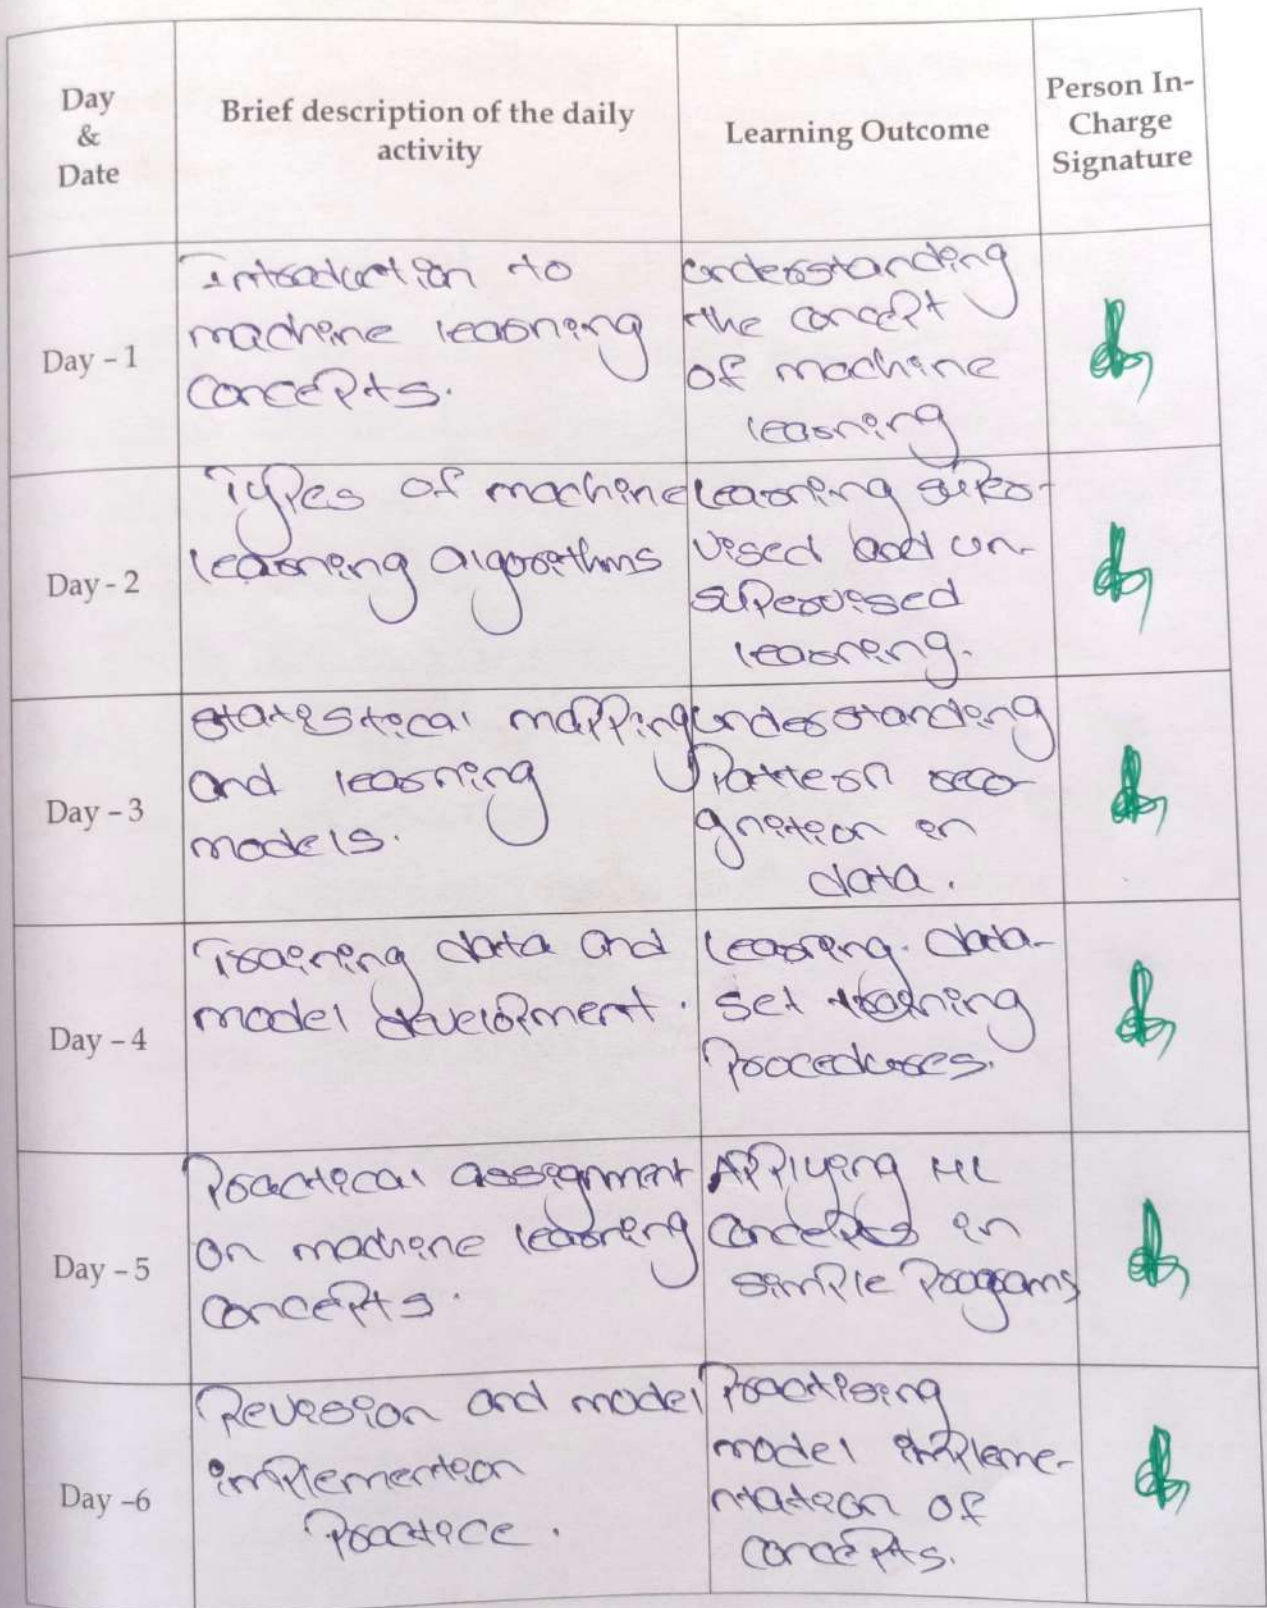 Day
&
Date
Brief description of the daily
activity
Learning Outcome
Person In-
Charge
Signature
Day – 1
Introduction to
machine learning
concepts.
understanding
the concept
of machine
learning
Day - 2
Types of machine
learning algorithms
Learning super-
vised and un-
supervised
learning.
Day – 3
statistical mapping
and learning
models.
understanding
Pattern reco-
gnition in
data.
Day – 4
Training data and
model development.
Learning data-
set training
Procedures.
Day – 5
Practical assignment
on machine learning
concepts.
Applying ML
concepts in
simple Programs
Day –6
Revision and model
implemention
Practice.
Practising
model impleme-
ntation of
concepts.